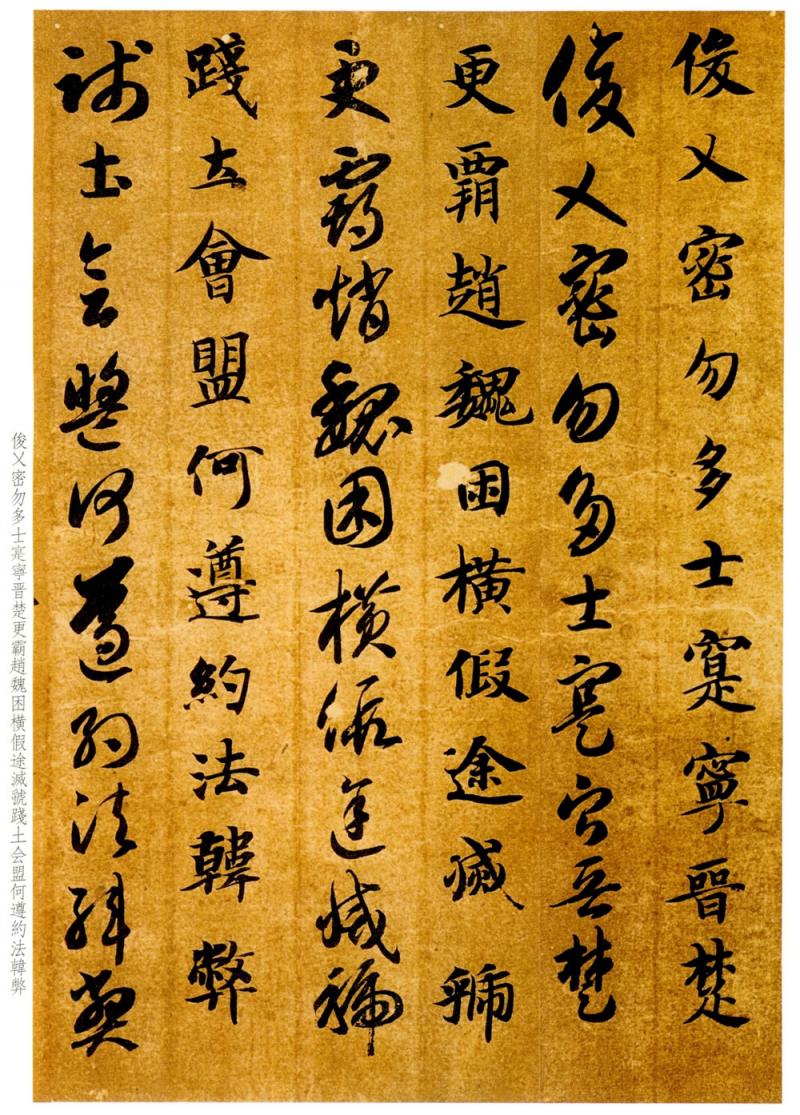 俊乂密勿多士寔寧晉楚
俊乂密勿多士寔寧晉楚
更霸趙魏困橫假途滅號
更霸趙魏困橫假途滅號
踐土會盟何遵約法韓弊
踐土會盟何遵約法韓弊
俊乂密勿多士寔寧晋楚更霸趙魏困横假途滅號踐土会盟何遵約法韓弊